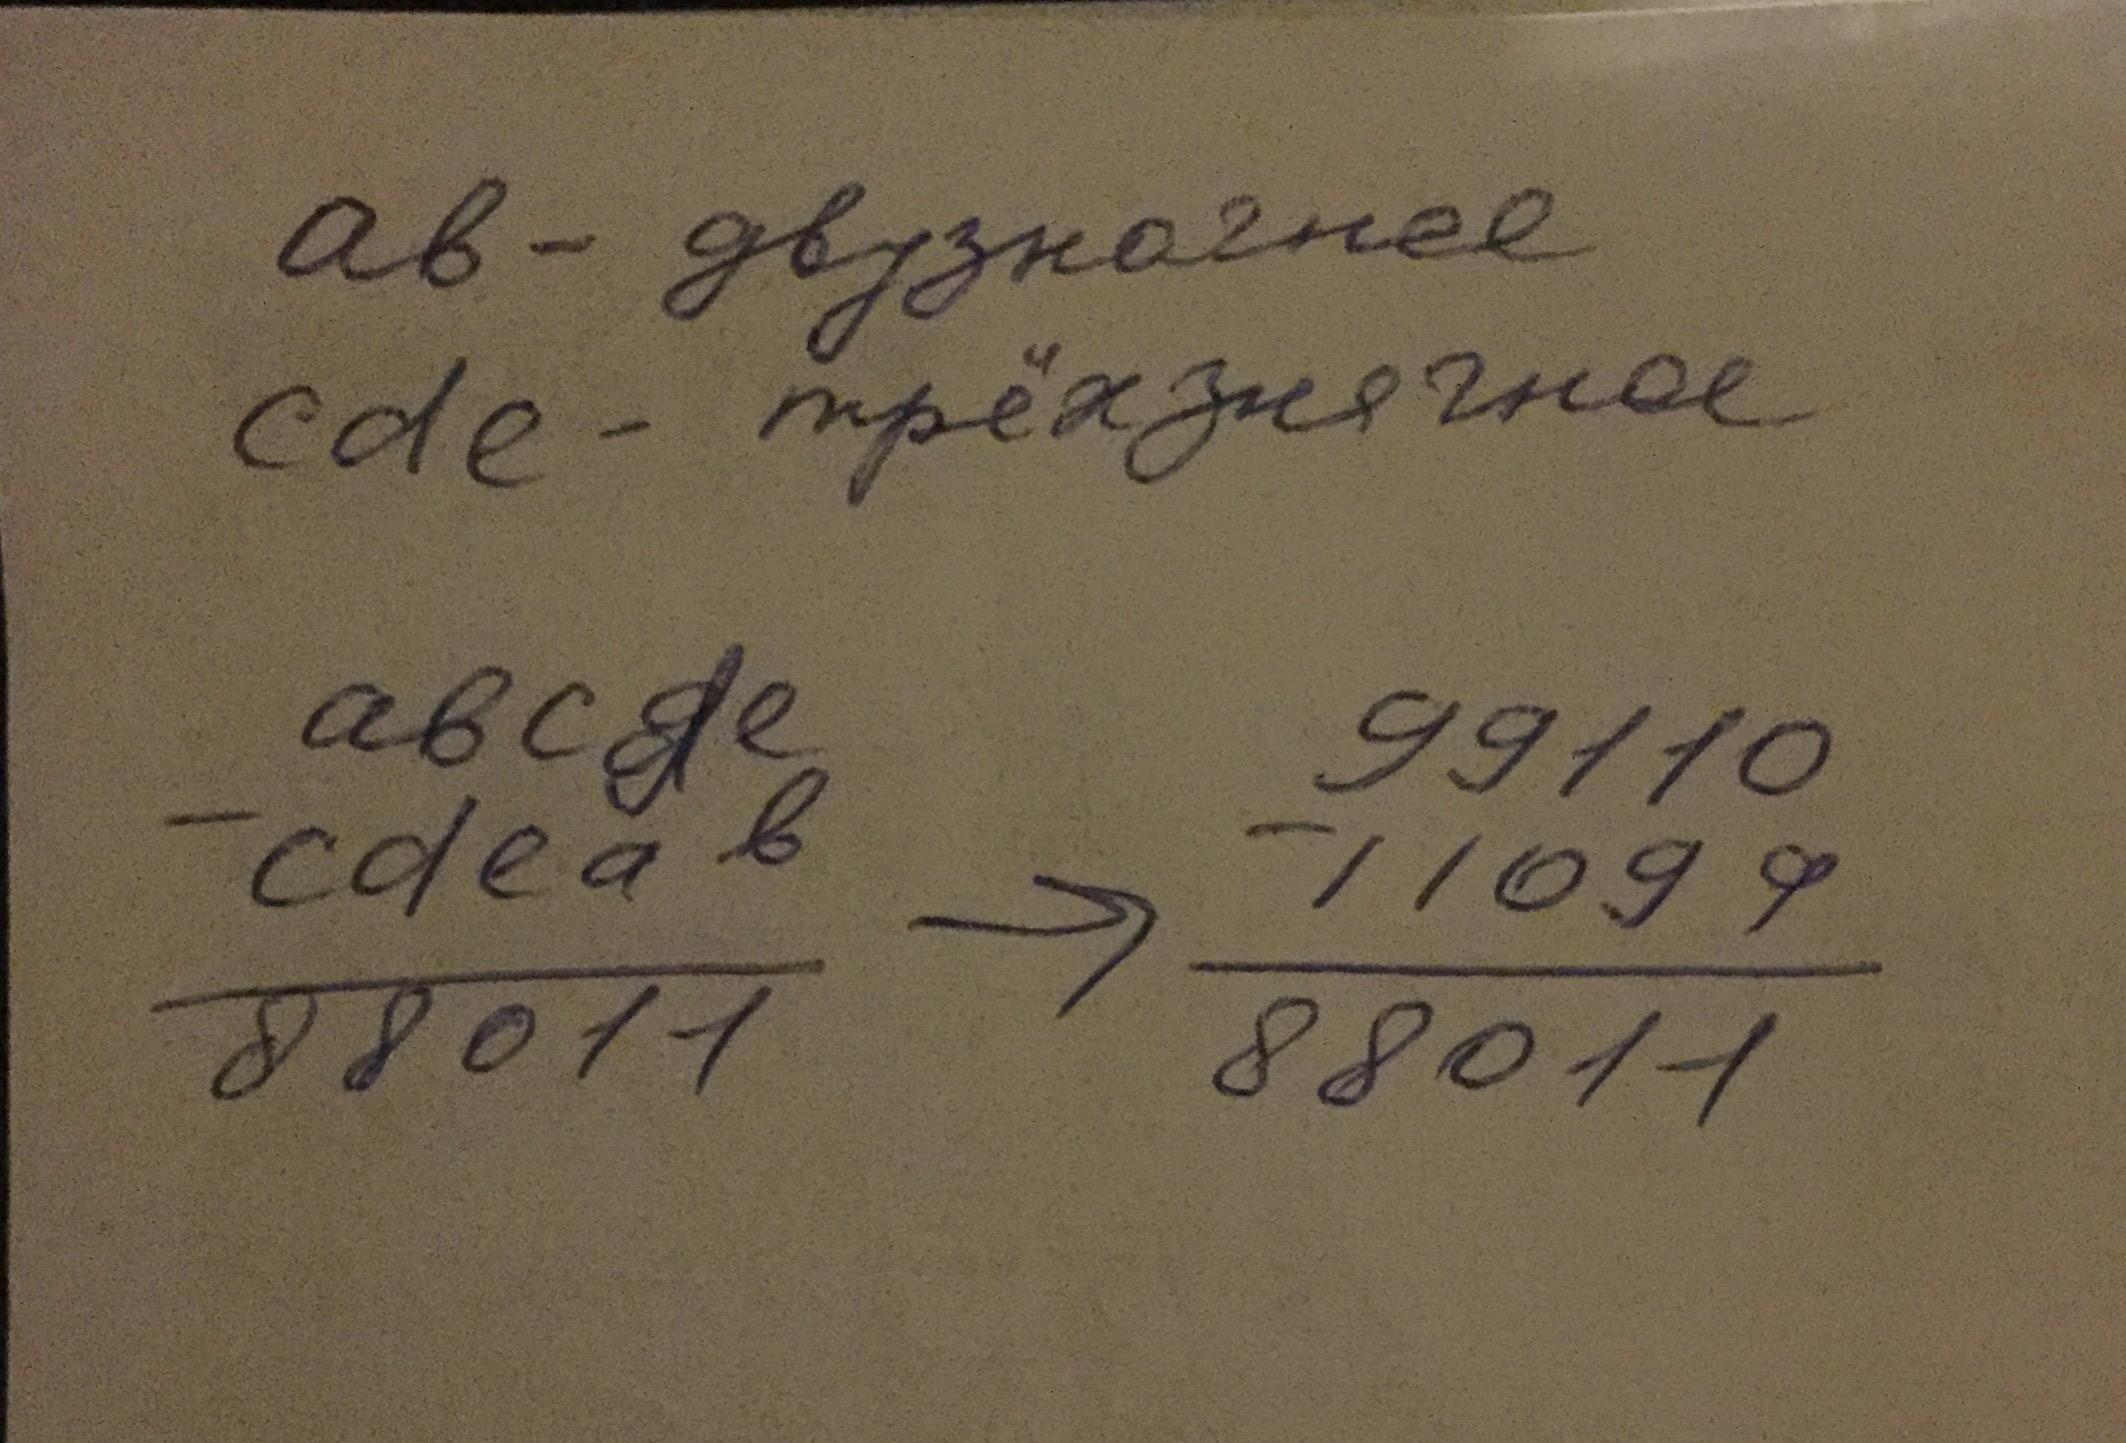 ав - двузначное
cde - трёхзначное
авcde
- cdeaв
88011
→
99110
- 11099
88011